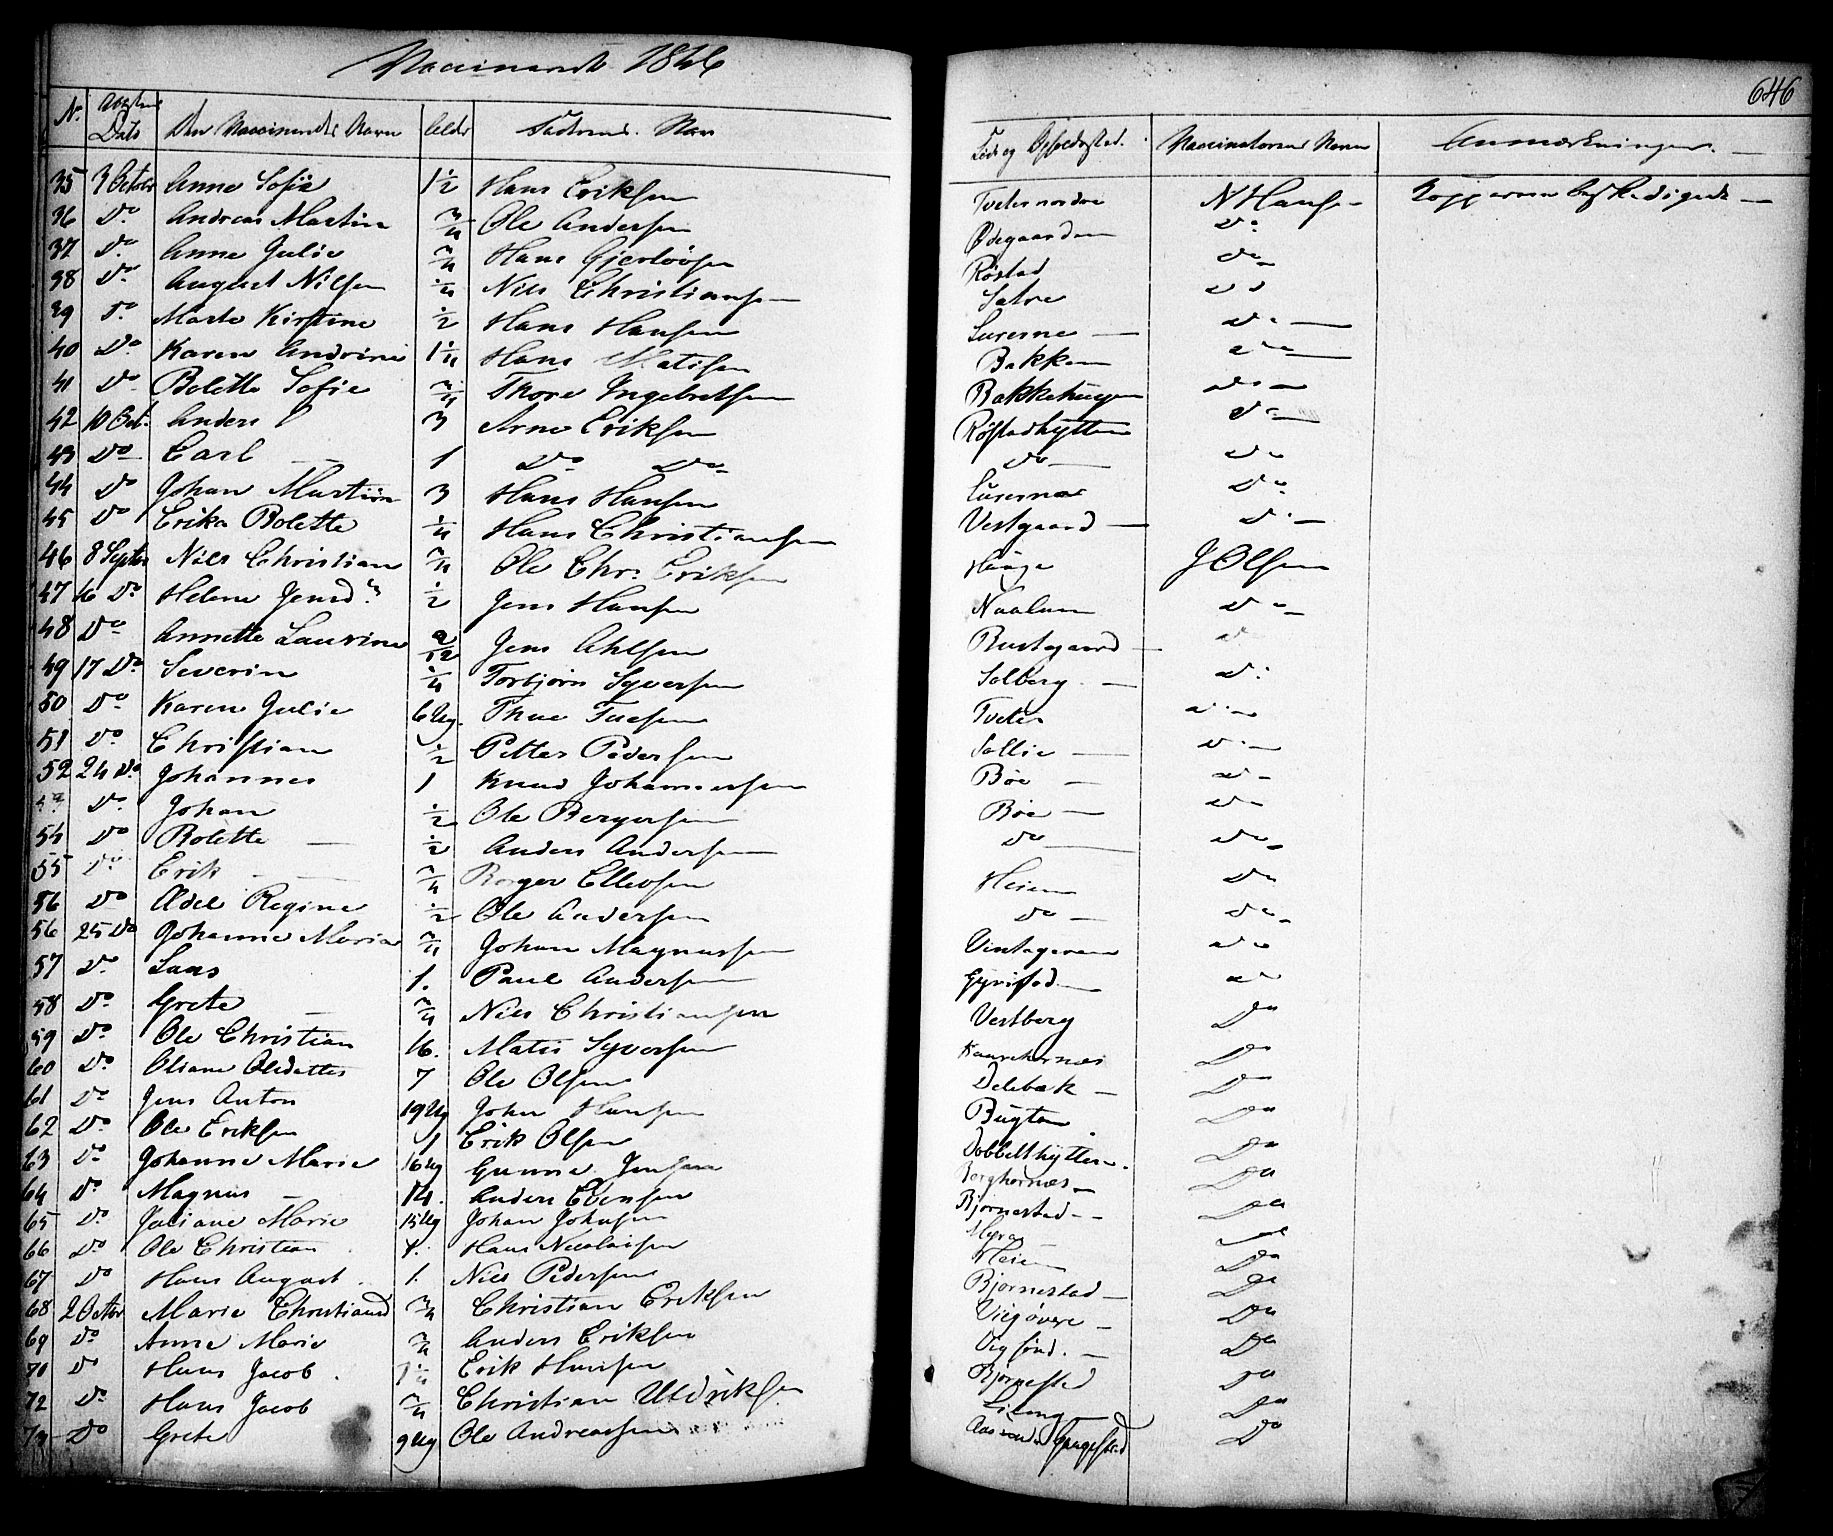 Vaccinerede 1846
646
No Attestens Dato Den Vaccineredes Navn Alder Fadrenes Navn Føde og Opholdssted. Vaccinatorens Navn Anmærkninger. —
35 3 October Anne Sofie 1 1/2 Hans Eriksen Tveter nordre N Hansen Kopperne besk
36 Do Andreas Martin 3/4 Ole Andersen Ødegaarden Do
37 Do Anne Julie 3/4 Hans Gjerløvsen Røstad Do
38 Do August Nilsen 1/4 Nils Christiansen Do
39 Do Marte Kirstine 1/2 Hans Hansen Do
40 Do Karen Andrine 1 1/4 Hans Matisen Bakken Do
41 Do Bolette Sofie 3/4 Thore Ingebretsen Bakkehaugen Do
42 10 Oct. Anders 3 Arne Eriksen Røstadhytten Do
43 Do Carl 1 Do Do Do Do
44 Do Johan Martin 3 Hans Hansen Do
45 Do Erika Bolette 1/4 Hans Christiansen Vestgaard Do
46 8 Septbr Nils Christian 3/4 Ole Chr. Eriksen Hauge J Olsen
47 16 Do Helene Jensd. 1/2 Jens Hansen Do
48 Do Annette Laurine 9/12 Jens Ahlsen Rustgaard Do
49 17 Do Severin 1/4 Torbjørn Syversen Solberg Do
50 Do Karen Julie 6 Ug. Thue Tuesen Tveter Do
51 Do Christian 1/2 Petter Pedersen Sollie Do
52 24 Do Johannes 1 Knud Johannessen Bøe Do
53 Do Johan 1/2 Ole Bergersen Bøe Do
54 Do Bolette 1/2 Anders Andersen Do Do
55 Do Erik 3/4 Borger Ellevsen Heien Do
56 Do Edel Regine 1/2 Ole Andersen Do Do
56 25 Do Johanne Maria 3/4 Johan Magnussen Do
57 Do Lars 1. Paul Andersen Do
58 Do Grete 3/4 Nils Christiansen Vestberg Do
59 Do Ole Christian 16. Matis Syversen Do
60 Do Oliane Olsdatter 7 Ole Olsen Delebæk Do
61 Do Jens Anton 19 Ug John Hansen Bugten Do
62 Do Ole Eriksen 1 Erik Olsen Dobbelthytten. Do
63 Do Johanne Marie 16 Ug Gunne Jensen Do
64 Do Magnus 14. Anders Evensen Bjørnestad Do
65 Do Juliane Marie 15 Ug Johan Johnsen Myra
66 Do Ole Christian 4. Hans Nicolaisen Heien Do
67 Do Hans August 1. Nils Pedersen Bjørnestad Do
68 2 Octbr Marie Christiansd 3/4 Christian Eriksen Do
69 Do Anne Marie 3/4 Anders Eriksen Do
71 Do Hans Jacob 1 1/4 Erik Hansen Bjørnestad Do
72 Do Hans Jacob 3/4 Christian Uldriksen Do
73 Do Grete 9 Ug Ole Andreassen Do